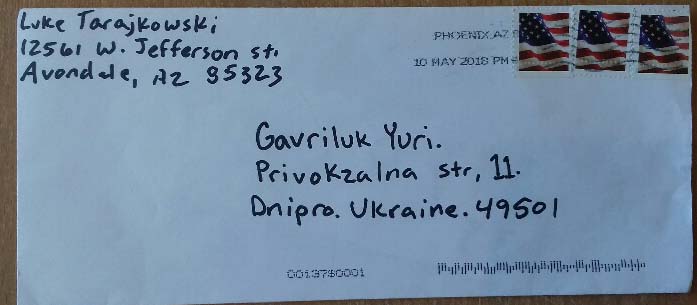 Luke Tarajkowski
12561 W. Jefferson st.
Avondale, AZ 85323
PHOENIX AZ
10 MAY 2018 PM
Gavriluk Yuri.
Privokzalna str, 11.
Dnipro. Ukraine. 49501
0013780001